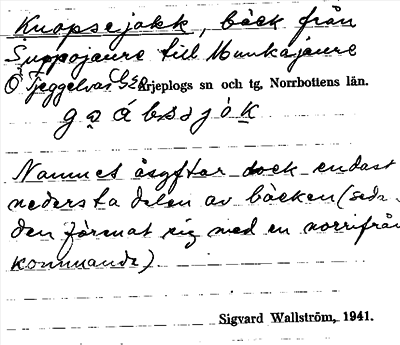 Knopsejokk, bäck från
Suppojaure till Munkajaure
O Tjeggelvas Arjeplogs sn och tg, Norrbottens län.
Namnet åsyftar dock endast
nedersta delen av bäcken (sedan
den förenat sig med en norrifrån
kommande)
Sigvard Wallström, 1941.